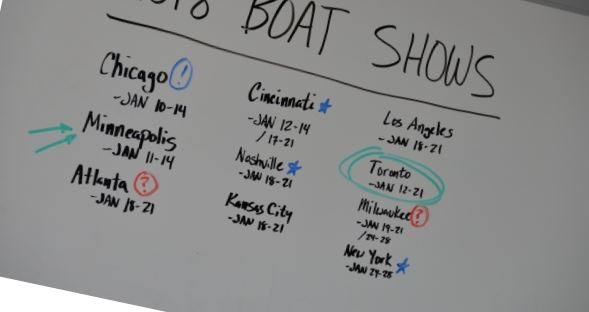 2018 BOAT SHOWS
Chicago !
-JAN 10-14
Minneapolis
-JAN 11-14
Atlanta ?
-JAN 18-21
Cincinnati
-JAN 12-14
/17-21
Nashville
-JAN 18-21
Kansas City
-JAN 18-21
Los Angeles
-JAN 18-21
Toronto
-JAN 12-21
Milwaukee ?
-JAN 19-21
/24-28
New York
-JAN 24-28